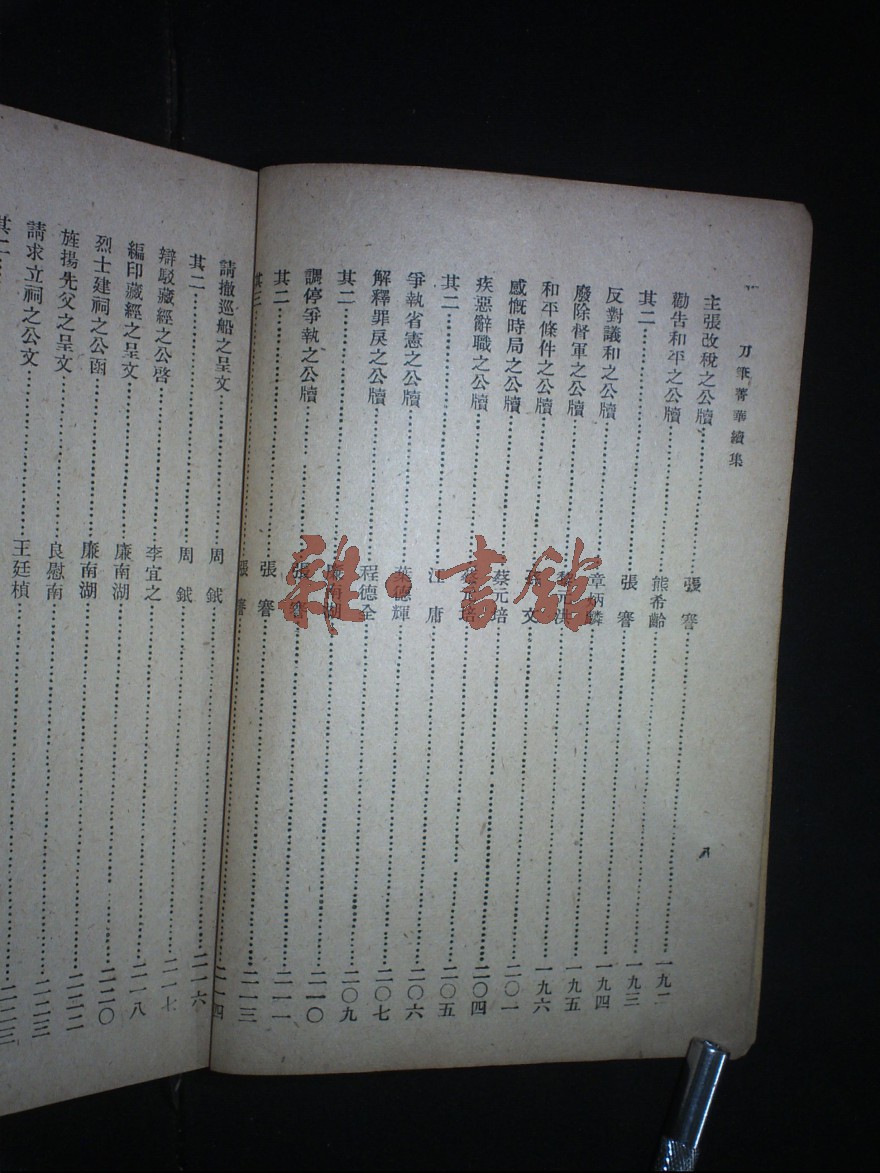 刀筆菁華續集
八
主張改稅之公牘……張謇……一九一
勸告和平之公牘……熊希齡……一九三
其二……張謇……一九四
反對議和之公牘……章炳麟……一九五
廢除督軍之公牘……黎元洪……一九六
和平條件之公牘……孫文……二〇一
感慨時局之公牘……蔡元培……二〇四
疾惡辭職之公牘……蔡元培……二〇五
其二……江庸……二〇六
爭執省憲之公牘……葉德輝……二〇七
解釋罪戾之公牘……程德全……二〇九
其二……廉南湖……二一〇
調停爭執之公牘……張謇……二一一
其二……張謇……二一三
其三……張謇……二一四
請撤巡船之呈文……周鉞……二一六
其二……周鉞……二一七
辯駁藏經之公啓……李宜之……二一八
編印藏經之呈文……廉南湖……二二〇
烈士建祠之公函……廉南湖……二二二
旌揚先父之呈文……良慰南……二二三
請求立祠之公文……王廷楨……二二三
其二
雜·書館